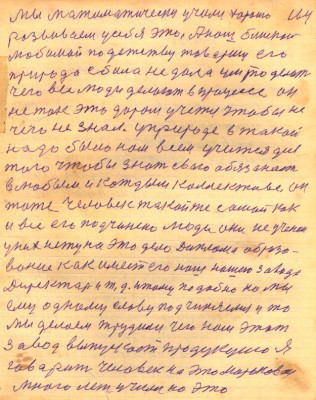 мы математически учили хорошо 164
развиваем у себя это, а наш близкий
любимой по детству товарищ его
природа сбила не дала им то делат
чего все люди делают в процессе он
не так это даром учется чтобы не
чего не знал. уприроде в такой
надо было нам всем учится для
того чтобы знат свою обязанаст
в любым и каждым коллективе он
тоже человек такой же самой как
и все его подчинено люди они не ученоя
у них нету на это дело диплома образо-
вание как имеет его наш нашево завода
директар и т.д. этому подобно но мы
ему одному слову подчиняемся то
мы делаем трудимся чего наш этот
завод выпускает продукцию Я
говарит человек на это
много лет учился но это